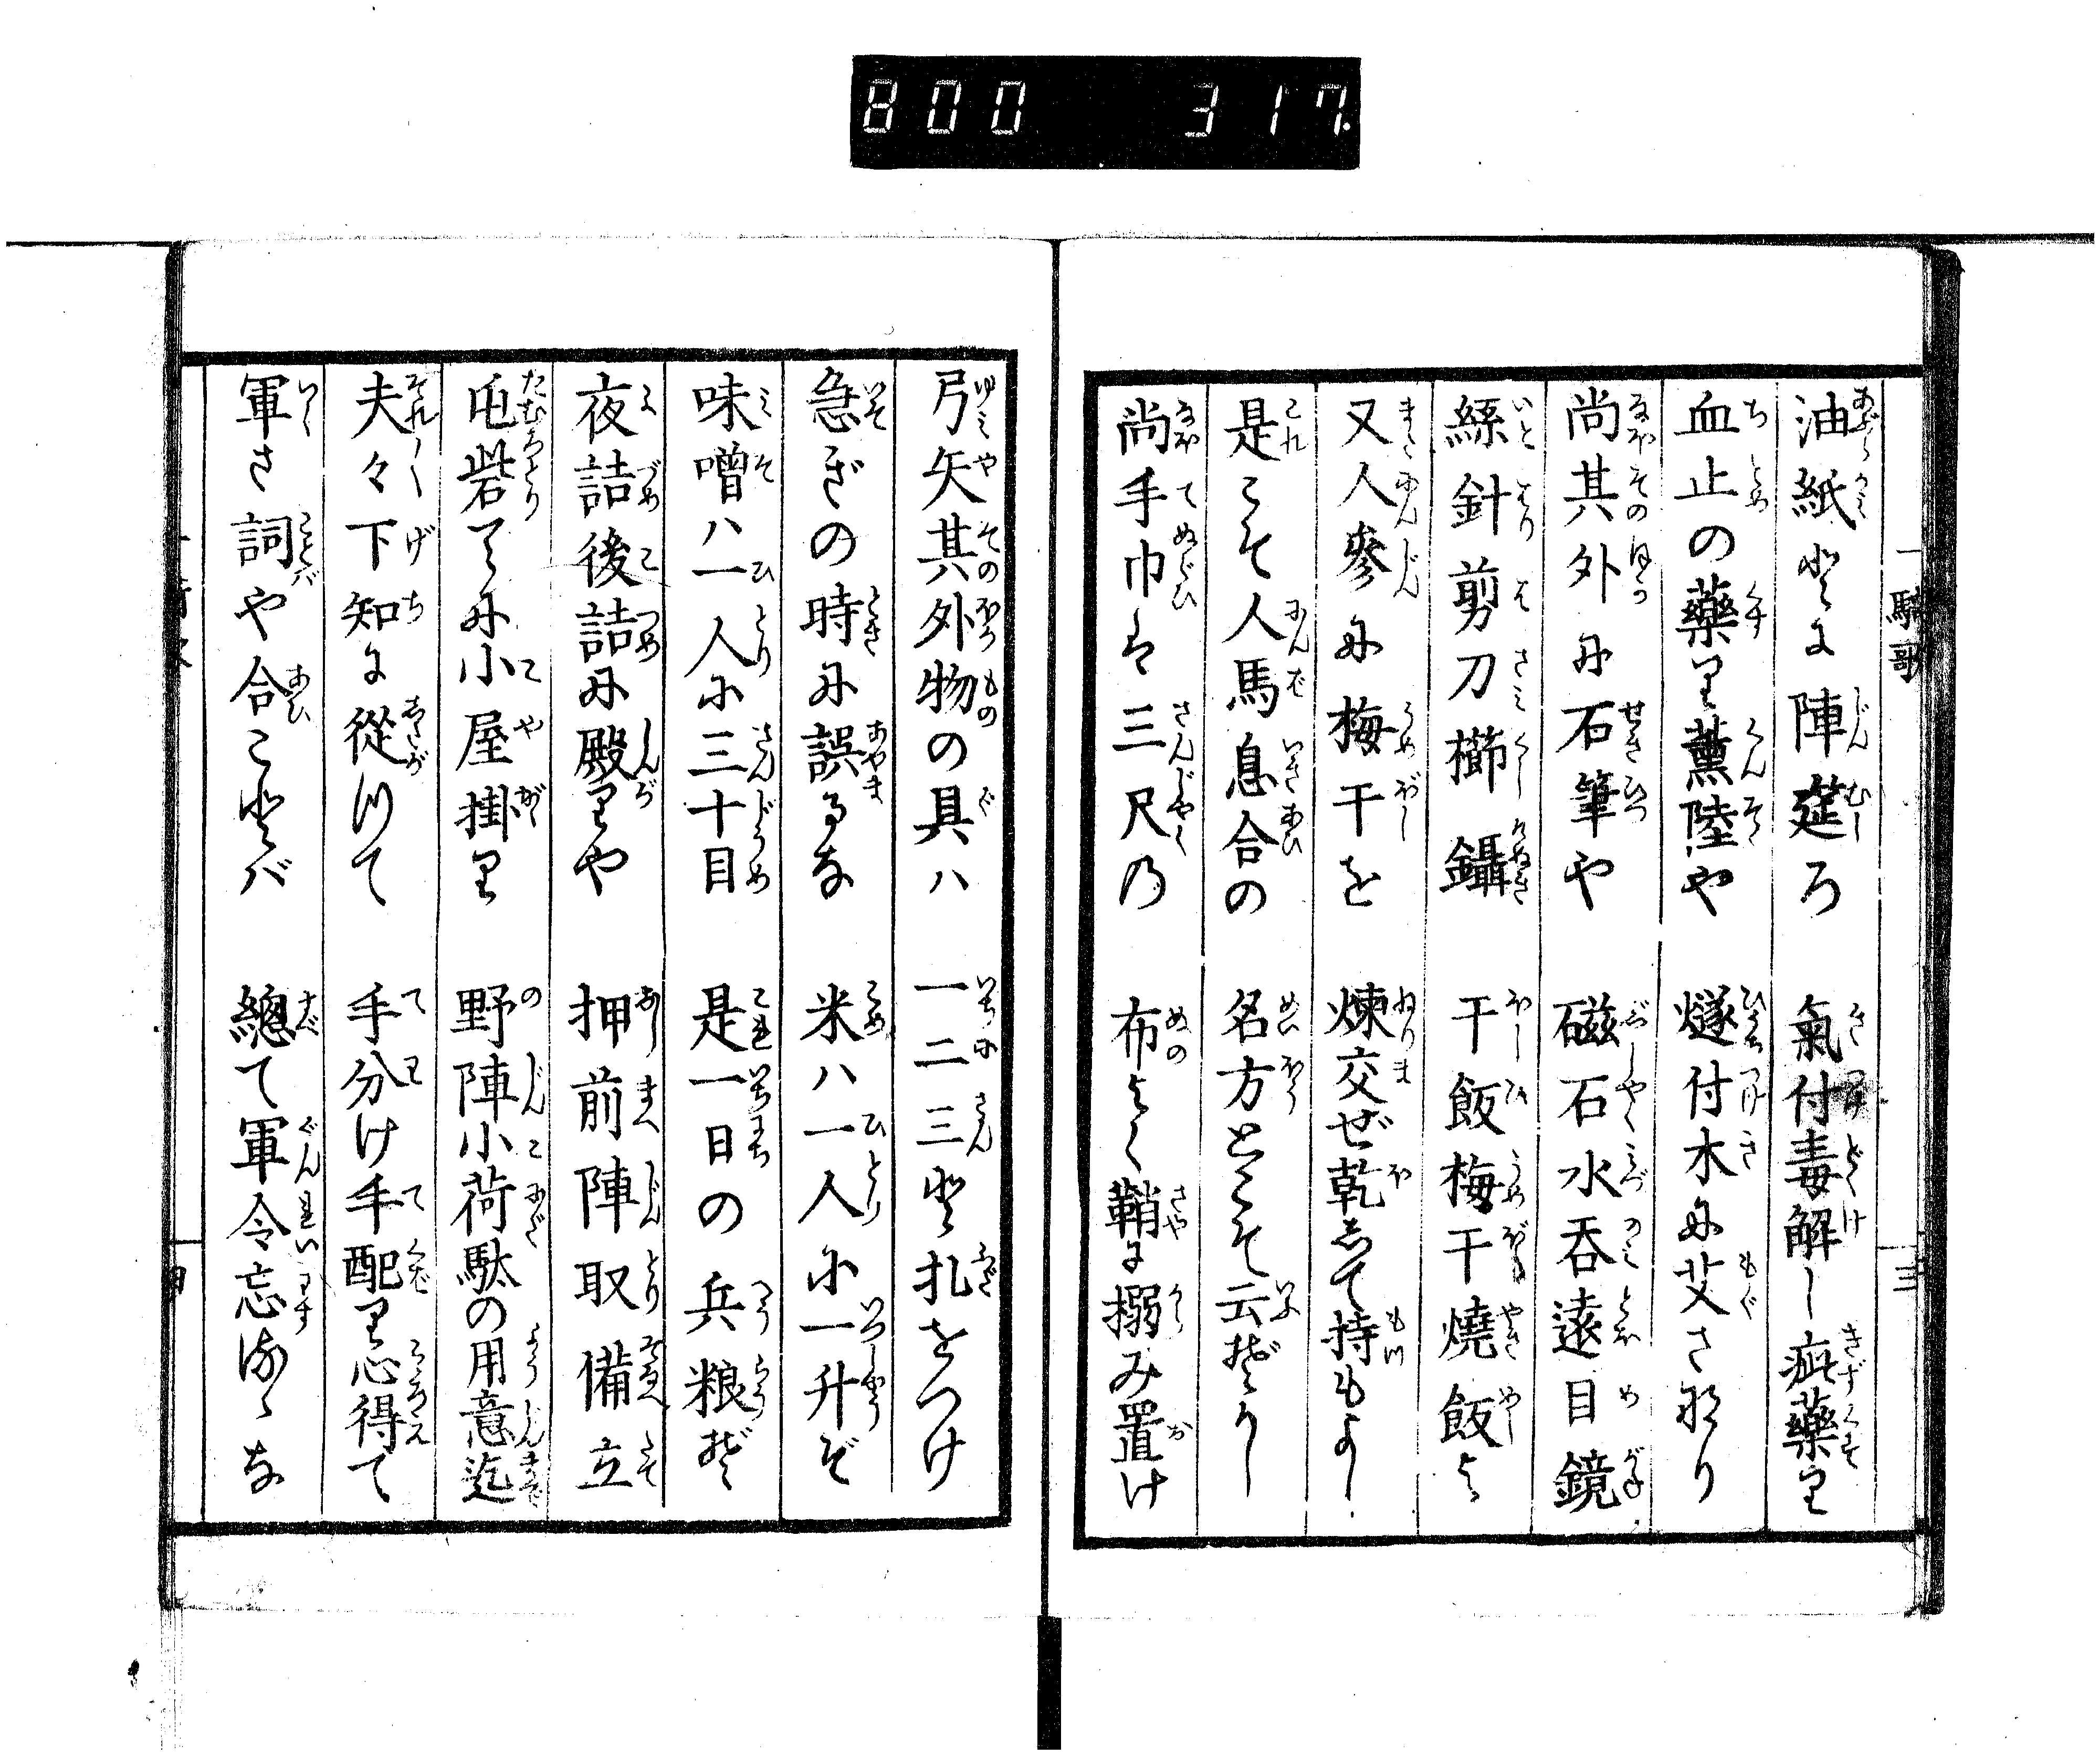 800 317.
一騎歌
三
油紙とに陣莚ろ 氣付毒解し疵藥り
血止の藥り薫陸や 燧付木に艾さなり
尚其外に石筆や 磁石水呑遠目鏡
絲針剪刀櫛鑷 干飯梅干燒飯よ
又人參に梅干を 煉交ぜ乾して持もよし
是こそ人馬息合の 名方とこそ云ぞかし
尚手巾は三尺の 布よく鞘に搦み置け
弓矢其外物の具ハ 一二三と札をつけ
急ぎの時に誤るな 米ハ一人に一升ぞ
味噌ハ一人に三十目 是一日の兵粮ぞ
夜詰後詰に殿りや 押前陣取備立
屯砦てに小屋掛り 野陣小荷駄の用意迄
夫々下知に從けて 手分け手配り心得て
軍さ詞や合ことバ 總て軍令忘るゝな